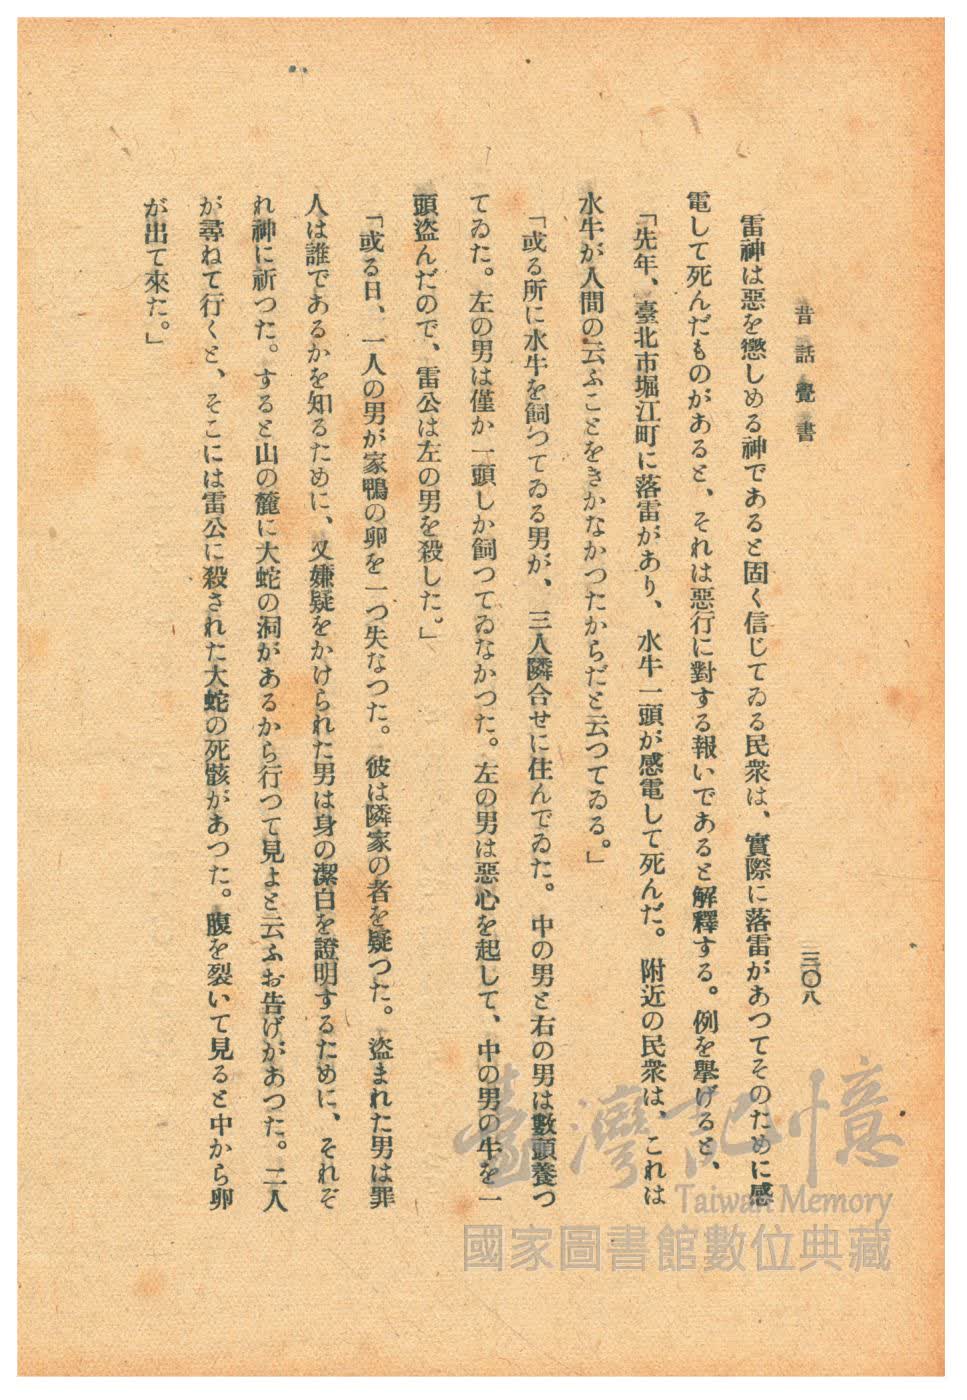 昔話覺書
三〇八
雷神は惡を懲しめる神であると固く信じてゐる民衆は、實際に落雷があつてそのために感
電して死んだものがあると、それは惡行に對する報いであると解釋する。例を擧げると、
「先年、臺北市堀江町に落雷があり、水牛一頭が感電して死んだ。附近の民衆は、これは
水牛が人間の云ふことをきかなかつたからだと云つてゐる。」
「或る所に水牛を飼つてゐる男が、三人隣合せに住んでゐた。中の男と右の男は數頭養つ
てゐた。左の男は僅か一頭しか飼つてゐなかつた。左の男は惡心を起して、中の男の牛を一
頭盜んだので、雷公は左の男を殺した。」
「或る日、一人の男が家鴨の卵を一つ失なつた。彼は隣家の者を疑つた。盜まれた男は罪
人は誰であるかを知るために、又嫌疑をかけられた男は身の潔白を證明するために、それぞ
れ神に祈つた。すると山の麓に大蛇の洞があるから行つて見よと云ふお告げがあつた。二人
が尋ねて行くと、そこには雷公に殺された大蛇の死骸があつた。腹を裂いて見ると中から卵
が出て來た。」
臺灣記憶
Taiwan Memory
國家圖書館數位典藏